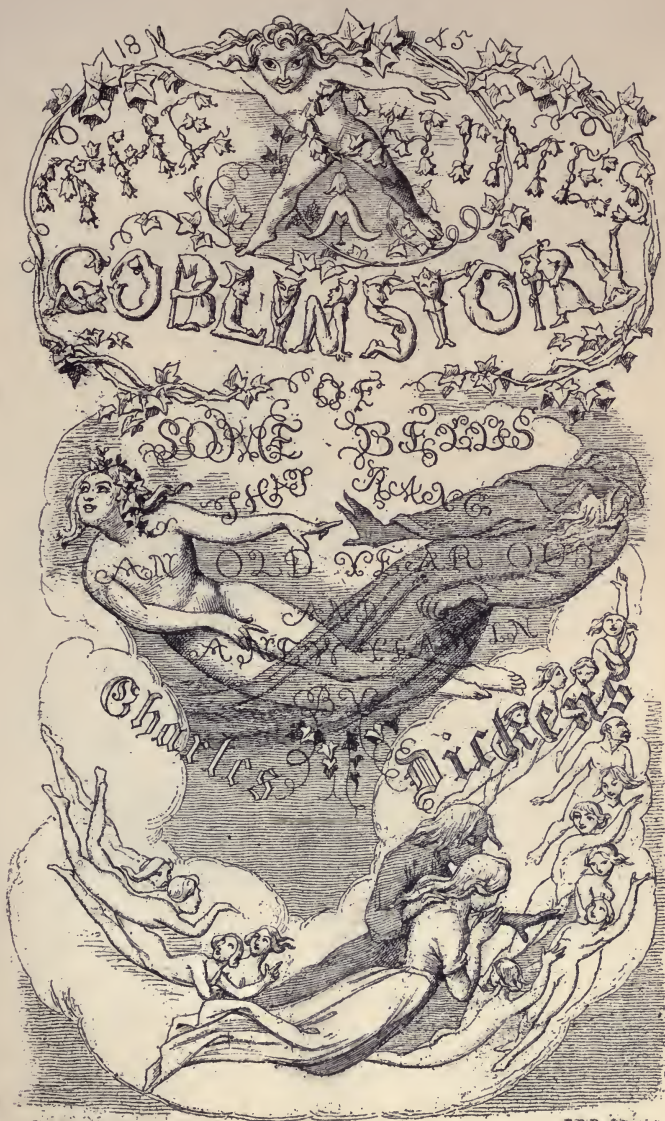 18 45
THE CHIMES
A
GOBLIN STORY
OF
SOME BELLS
THAT RANG
AN OLD YEAR OUT
AND
A NEW YEAR IN
BY
Charles Dickens